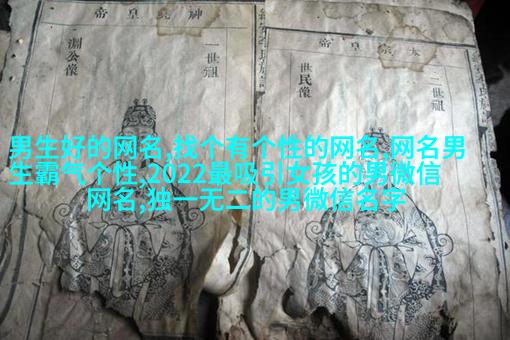 神堯皇帝
一世祖
淵公像
太宗皇帝
二世祖
世民像
男生好的网名,找个有个性的网名,网名男
生霸气个性,2022最吸引女孩的男微信
网名,独一无二的男微信名字